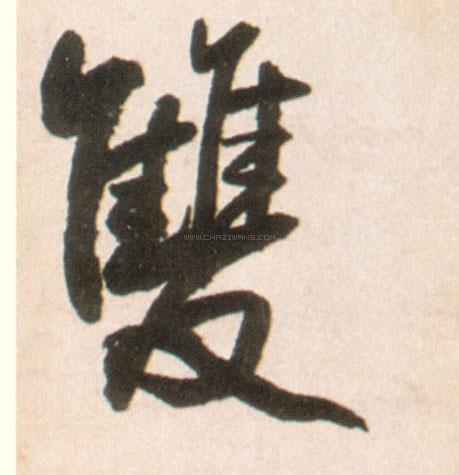 雙
WWW.CHAZIWANG.COM